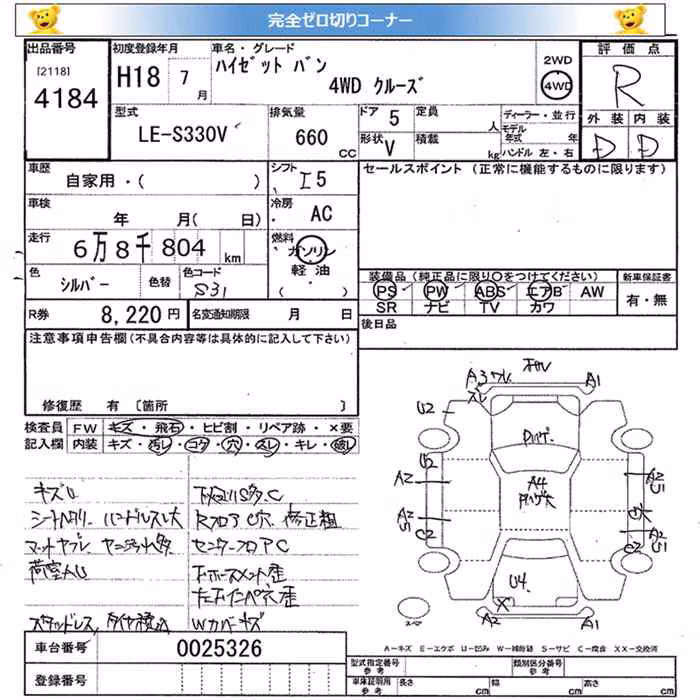 完全ゼロ切りコーナー
出品番号
[2118]
4184
初度登録年月
H18 7月
車名・グレード
ハイゼット バン
4WD クルーズ
2WD
4WD
評価点
R
外装 内装
D D
型式
LE-S330V
排気量
660 CC
ドア 5
形状 V
定員 人
積載 kg
ディーラー・並行
モデル年式 年
ハンドル 左・右
車歴
自家用・( )
シフト I5
セールスポイント (正常に機能するものに限ります)
車検
年 月( 日)
冷房 AC
走行
6万8千804 km
燃料
ガソリン
軽油
( )
色
シルバー
色替
色コード
S31
装備品(純正品に限り○をつけてください)
PS PW ABS エアB AW
SR ナビ TV カワ
新車保証書
有・無
R券 8,220円
名変通知期限 月 日
後日品
注意事項申告欄(不具合内容等は具体的に記入して下さい)
修復歴 有 〔箇所 〕
検査員記入欄
FW キズ・飛石・ヒビ割・リペア跡・×要
内装 キズ・汚レ・コゲ・穴・スレ・キレ・破レ
キズU
下廻りS多.C
Rフロア C穴 修正粗
センターフロアC
荷室AU
Wカバーキズ
A3 A1
U2
U2
A2
A2
U1
C2
A4
U4
A2
U1
A2
U1
C2
A2 A1
A-キズ E-エクボ U-凹み W-補修跡 S-サビ C-腐食 XX-交換済
車台番号 0025326
登録番号
型式指定番号 参考
類別区分番号 参考
車庫証明用 参考
長さ cm 幅 cm 高さ cm